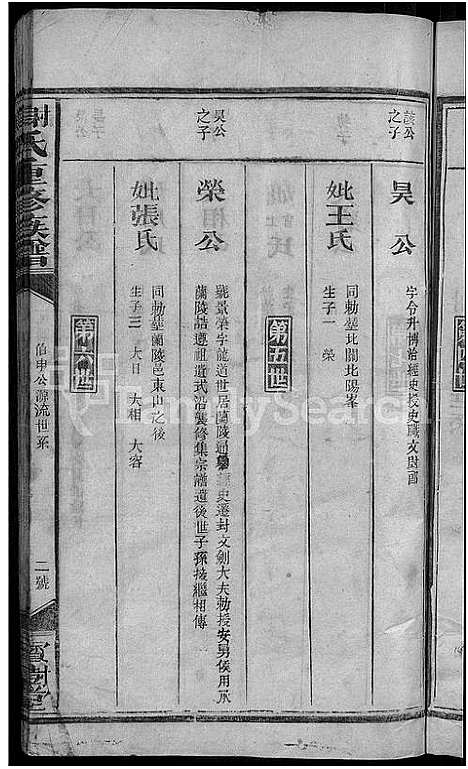 該公
之子
昊公
字令升博洽經史授史職文尉酉
妣王氏
同勅塟北關北陽峯
生子一 榮
第五世
昊公
之子
榮公
號景榮字龍道世居蘭陵通 經史遷封文劍大夫勅授安男侯用承
蘭陵喆遵祖遺式沿襲修集宗譜遺後世子孫接繼相傳
妣張氏
同勅塟蘭陵邑東山之後
生子三 大目 大相 大容
第六世
謝氏重修族譜
伯申公源流世系
二號
寶樹堂
FamilySearch